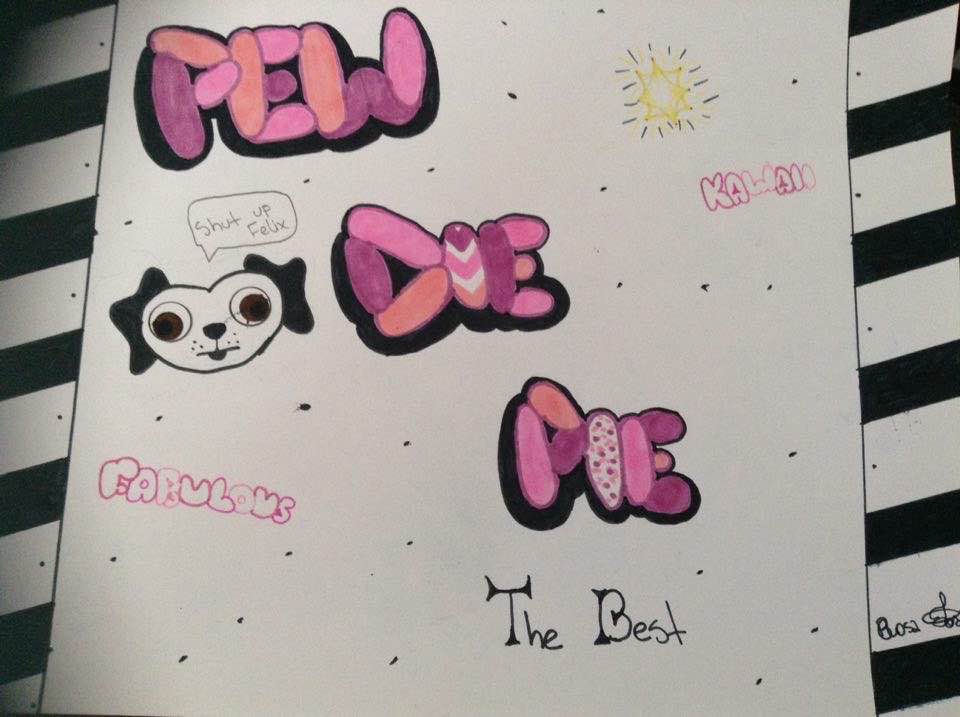 PEW
KAWAII
Shut up
Felix
DIE
PIE
FABULOUS
The Best